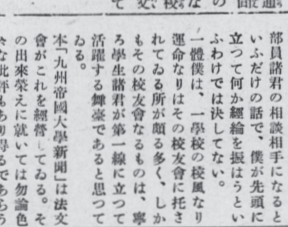 部員諸君の相談相手になると
いふだけの話で、僕が先頭に
立つて何か經綸を振はうとい
ふわけでは決してない。
一體僕は、一學校の校風なり
運命なりはその校友會に托さ
れてゐる所が頗る多く、しか
もその校友會なるものは、寧
ろ學生諸君が第一線に立つて
活躍する舞臺であると思つて
ゐる。
本「九州帝國大學新聞」は法文
會がこれを經營してゐる。そ
の出來栄えに就いては勿論色
々な批評もあり得るであらう